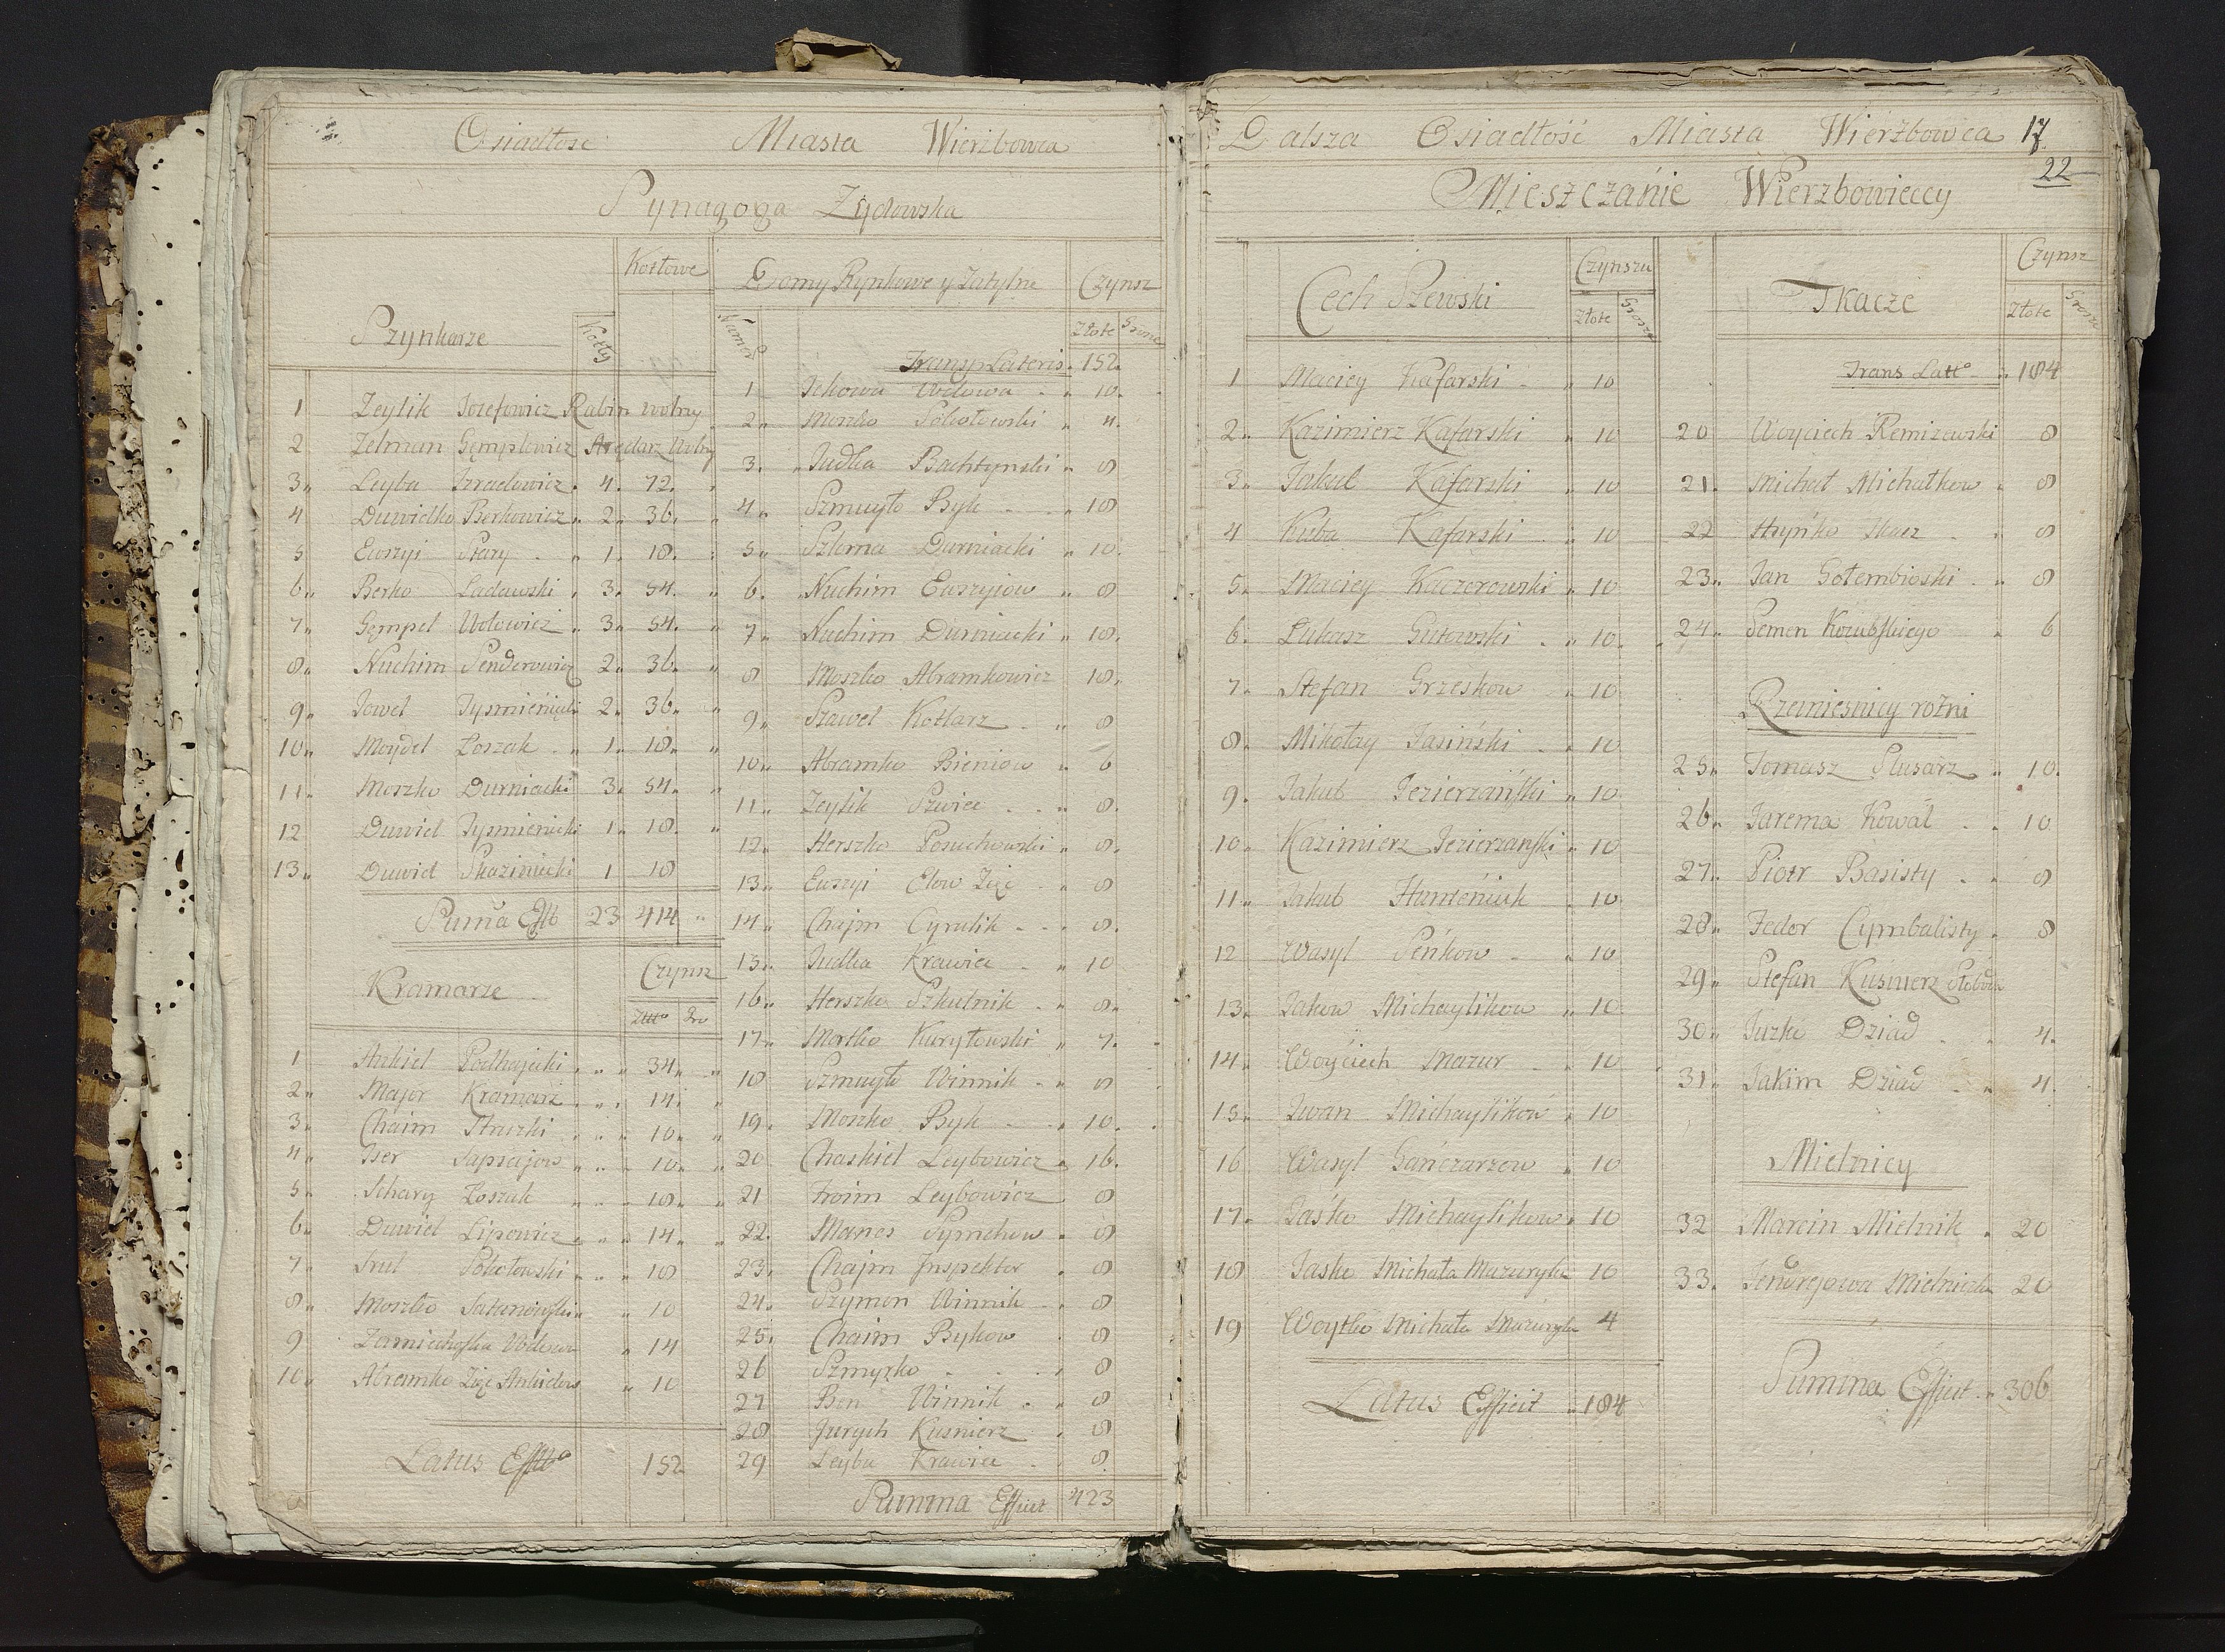 Osiadłosc Miasta Wierzbowca
Synagoga Zydowska
Szynkarze Kotły Kotłowe
1 Zeylik Jozefowicz Rabin wolny
2 Zelman Gęmplowicz Arędarz Wolny
3 Leyba Izraelowicz 4 72
4 Duwidko Berkowicz 2 36
5 Ewszyi Stary 1 18
6 Berko Ladawski 3 54
7 Gęmpel Wolowicz 3 54
8 Nuchim Senderowicz 2 36
9 Jowel Tysmienicki 2 36
10 Moydel Łoszak 1 18
11 Moszko Durniacki 3 54
12 Duwid Tysmienicki 1 18
13 Duwid 1 18
Suma Efft 23 414
Kramarze Czynsz
Złłt Gro
1 Ankiel Podhajecki 34
2 Major Kramarz 14
3 Chaim 10
4 Iser 10
5 Łoszak 18
6 Duwid Lipowicz 14
7 Srul Sokołowski 18
8 Moszko 10
9 Wdowa 14
10 Abramko Zięc Ankielow 10
Latus Efft 152
Domy Rynkowe y Zatylne Czynsz
Numer Złote Grosze
Transp Lateris 152
1 Ickowa Wdowa 10
2 Moszko Sokołowski 4
3 Judka Bachtynski 8
4 Szmuyło Byk 18
5 Szloma Durniacki 10
6 Nuchim Ewszyiow 8
7 Nuchim Durniacki 18
8 Moszko Abramkowicz 18
9 Szawel Kotlarz 8
10 Abramko Bieniow 6
11 Zeylik Szwiec 8
12 Herszko Posuchowski 8
13 Ewszyi Elow Zięc 8
14 Chajm Cyrulik 8
15 Judka Krawiec 10
16 Herszko Szkulnik 8
17 Motko Kuryłowski 7
18 Szmuyło Winnik 8
19 Moszko Byk 10
20 Chaskiel Leybowicz 16
21 Froim Leybowicz 8
22 Manes Symchow 8
23 Chajm Inspektor 8
24 Szymon Winnik 8
25 Chaim Bykow 8
26 Szmyrko 8
27 Ben Winnik 8
28 Jurych Kusnierz 8
29 Leyba Krawiec 8
Summa Efficit 423
Dalsza Osiadłość Miasta Wierzbowca 17
22
Mieszczańie Wierzbowieccy
Cech Szewski Czynszu
Złote Grosze
1 Maciey Kafarski 10
2 Kazimierz Kafarski 10
3 Jakub Kafarski 10
4 Kuba Kafarski 10
5 Maciey Kaczorowski 10
6 Łukasz Gutowski 10
7 Stefan Grzeskow 10
8 Mikołay Jasiński 10
9 Jakub Jezierzański 10
10 Kazimierz Jezierzanski 10
11 Jakub Humeńiuk 10
12 Wasyl Seńkow 10
13 Jakow Michaylikow 10
14 Woyciech Mazur 10
15 Iwan Michaylikow 10
16 Wasyl Gańczarzow 10
17 Jaśko Michaylikow 10
18 Jasko Michała Mazuryka 10
19 Woytko Michała Mazuryka 4
Latus Efficit 184
Tkacze Czynsz
Złote Grosze
Trans Latt 184
20 Woyciech Remizewski 8
21 Michał Michałkow 8
22 Hryńko Tkacz 8
23 Jan Gołembioski 8
24 Semen Kozubskiego 6
Rzemiesnicy rożni
25 Tomasz Slusarz 10
26 Jarema Kowal 10
27 Piotr Basisty 8
28 Fedor Cymbalisty 8
29 Stefan Kusnierz Słoboda
30 Juzko Dziad 4
31 Jakim Dziad 4
Mielnicy
32 Marcin Mielnik 20
33 Jendrejowa Mielniczka 20
Summa Efficit 306